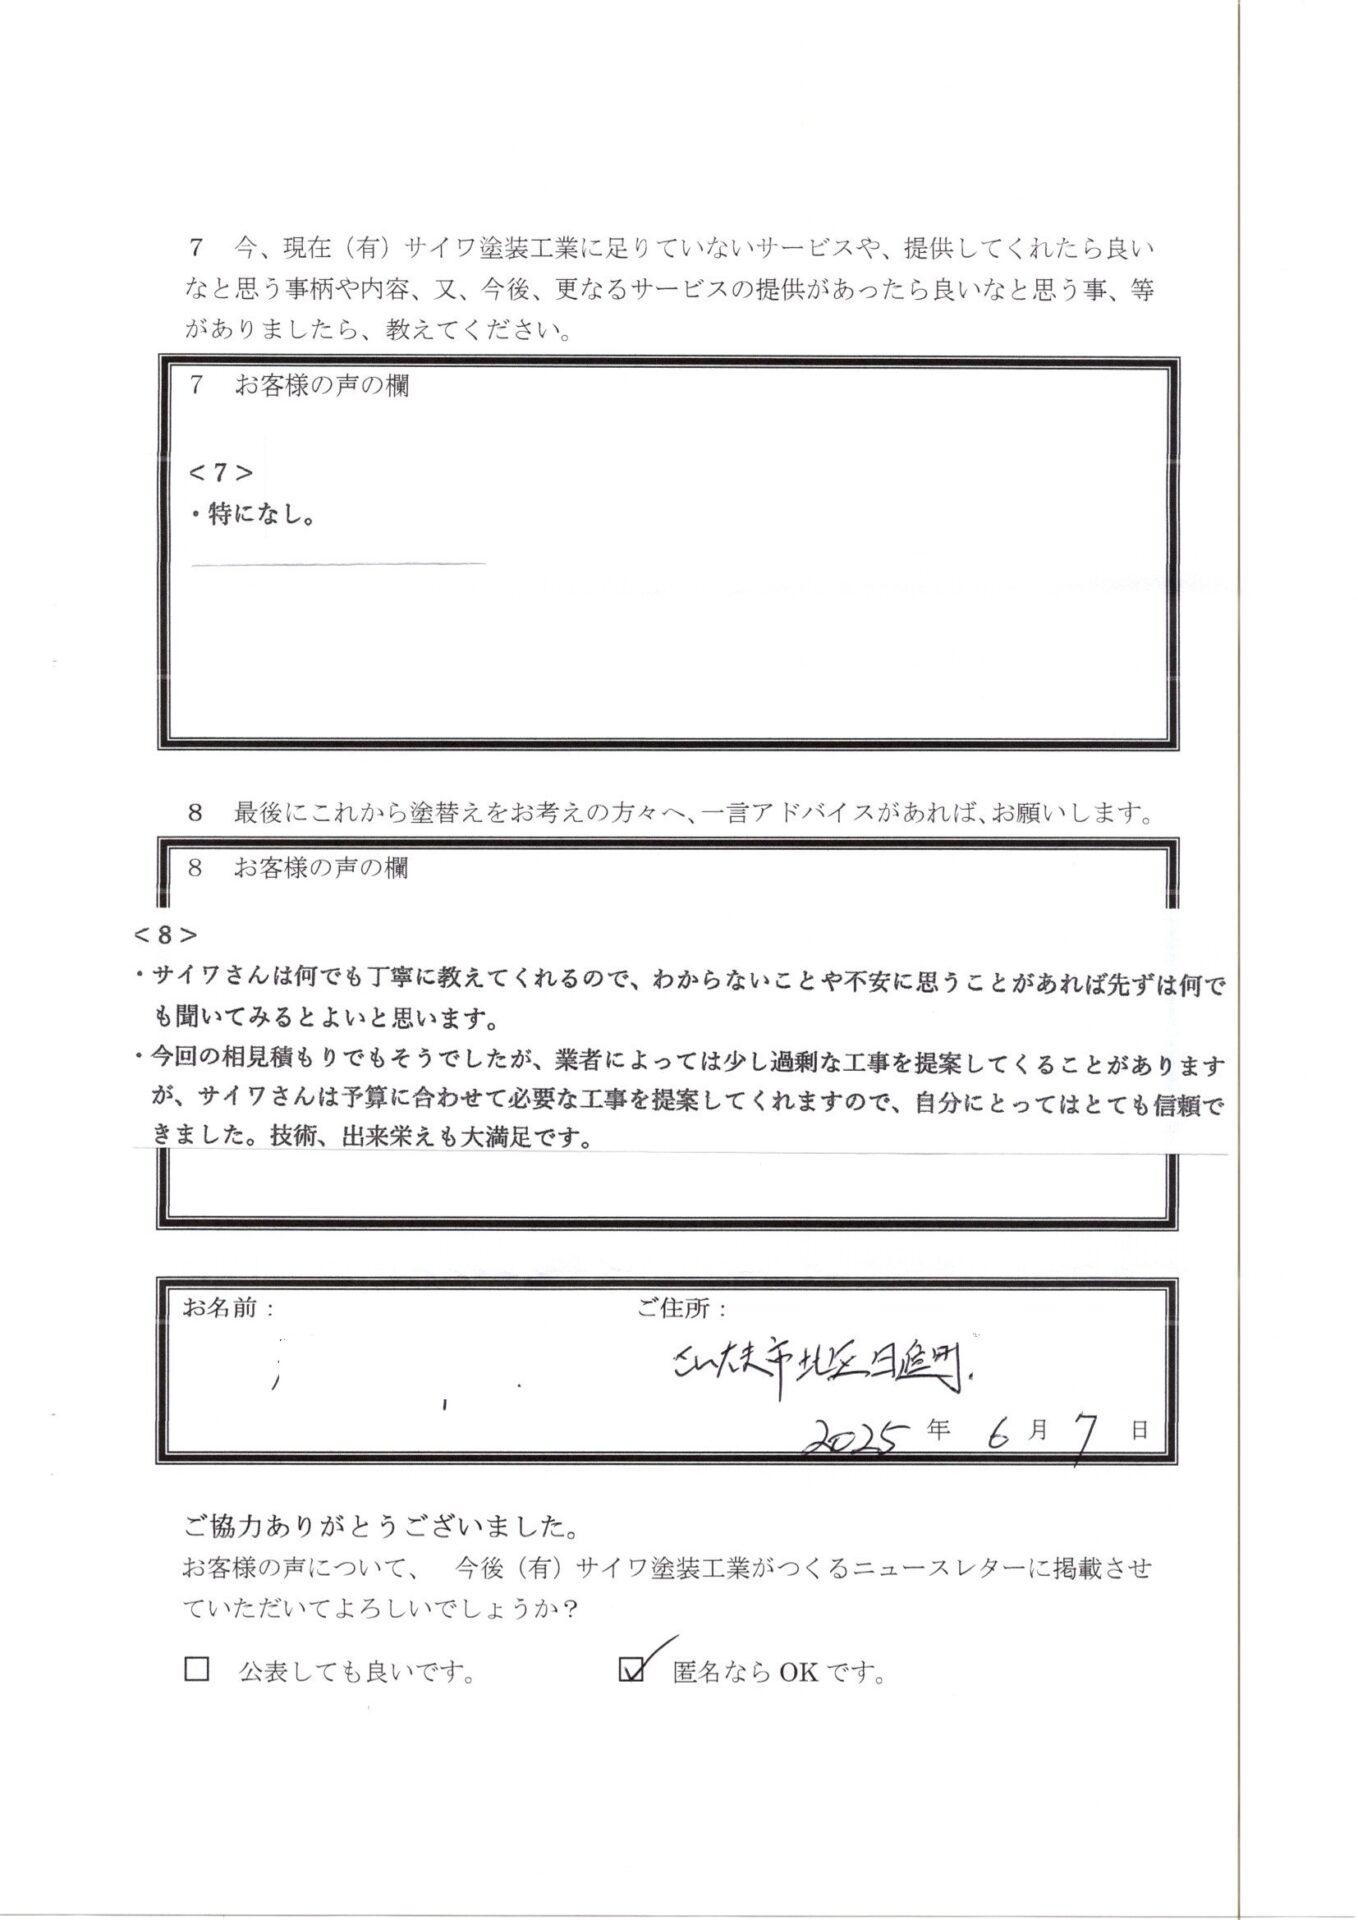 ７　今、現在（有）サイワ塗装工業に足りていないサービスや、提供してくれたら良い
なと思う事柄や内容、又、今後、更なるサービスの提供があったら良いなと思う事、等
がありましたら、教えてください。
７　お客様の声の欄
＜7＞
・特になし。
８　最後にこれから塗替えをお考えの方々へ、一言アドバイスがあれば、お願いします。
８　お客様の声の欄
＜8＞
・サイワさんは何でも丁寧に教えてくれるので、わからないことや不安に思うことがあれば先ずは何で
も聞いてみるとよいと思います。
・今回の相見積もりでもそうでしたが、業者によっては少し過剰な工事を提案してくることがあります
が、サイワさんは予算に合わせて必要な工事を提案してくれますので、自分にとってはとても信頼で
きました。技術、出来栄えも大満足です。
お名前：　ご住所：
さいたま市北区日進町.
2025 年 6 月 7 日
ご協力ありがとうございました。
お客様の声について、　今後（有）サイワ塗装工業がつくるニュースレターに掲載させ
ていただいてよろしいでしょうか？
□　公表しても良いです。　☑　匿名なら OK です。